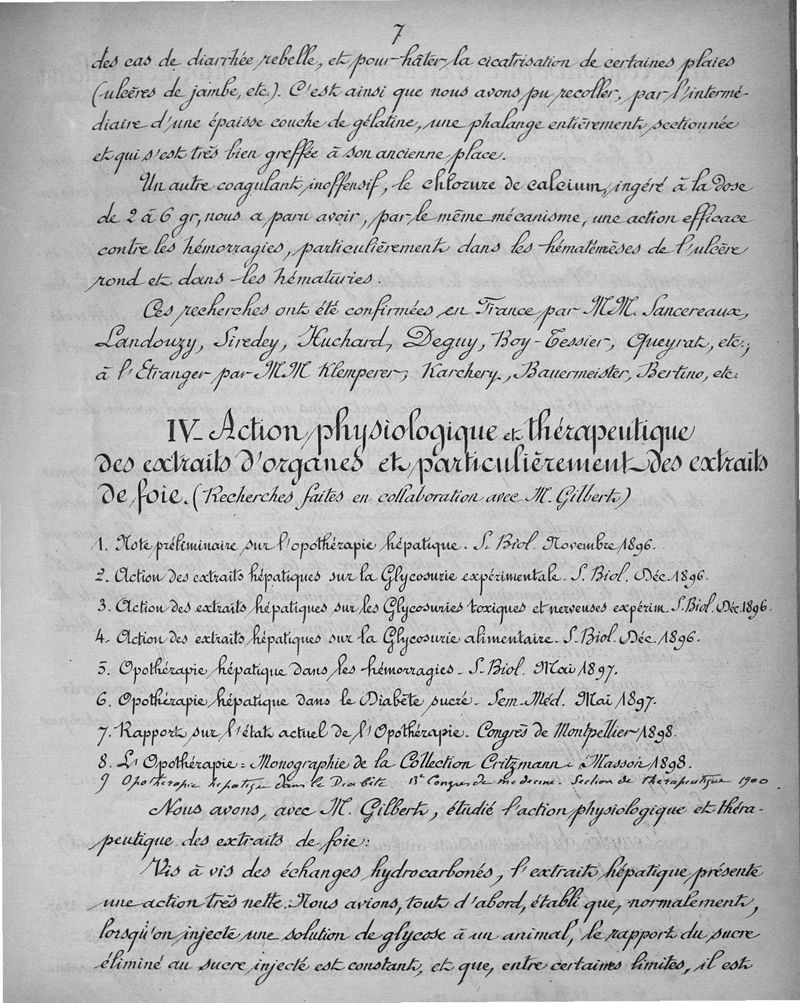 7
des cas de diarrhée rebelle, et pour hâter la cicatrisation de certaines plaies
(ulcères de jambe, etc.). C'est ainsi que nous avons pu recoller, par l'intermé-
diaire d'une épaisse couche de gélatine, une phalange entièrement sectionnée
et qui s'est très bien greffée à son ancienne place.
Un autre coagulant inoffensif, le chlorure de calcium, ingéré à la dose
de 2 à 6 gr, nous a paru avoir, par le même mécanisme, une action efficace
contre les hémorragies, particulièrement dans les hématémèses de l'ulcère
rond et dans les hématuries.
Ces recherches ont été confirmées en France par MM. Lancereaux,
Landouzy, Siredey, Huchard, Deguy, Boy-Tessier, Queyrat, etc.;
à l'Etranger par MM Klemperer, Karchery, Bauermeister, Bertino, etc.
IV- Action physiologique et thérapeutique
des extraits d'organes et particulièrement des extraits
de foie. (Recherches faites en collaboration avec M. Gilbert)
1. Note préliminaire sur l'opothérapie hépatique. S. Biol. Novembre 1896.
2. Action des extraits hépatiques sur la Glycosurie expérimentale. S. Biol. Déc. 1896.
3. Action des extraits hépatiques sur les Glycosuries toxiques et nerveuses expérim. S. Biol. Déc. 1896.
4. Action des extraits hépatiques sur la Glycosurie alimentaire. S. Biol. Déc. 1896.
5. Opothérapie hépatique dans les hémorragies. S. Biol. Mai 1897.
6. Opothérapie hépatique dans le Diabète sucré. Sem. Méd. Mai 1897.
7. Rapport sur l'état actuel de l'Opothérapie. Congrès de Montpellier 1898.
8. L'Opothérapie. Monographie de la Collection Critzmann. Masson 1898.
9 Opothérapie hépatique dans le Diabète 13e Congres de medecine. Section de thérapeutique 1900
Nous avons, avec M. Gilbert, étudié l'action physiologique et théra-
peutique des extraits de foie:
Vis à vis des échanges hydrocarbonés, l'extrait hépatique présente
une action très nette. Nous avions, tout d'abord, établi que, normalement,
lorsqu'on injecte une solution de glycose à un animal, le rapport du sucre
éliminé au sucre injecté est constant, et que, entre certaines limites, il est